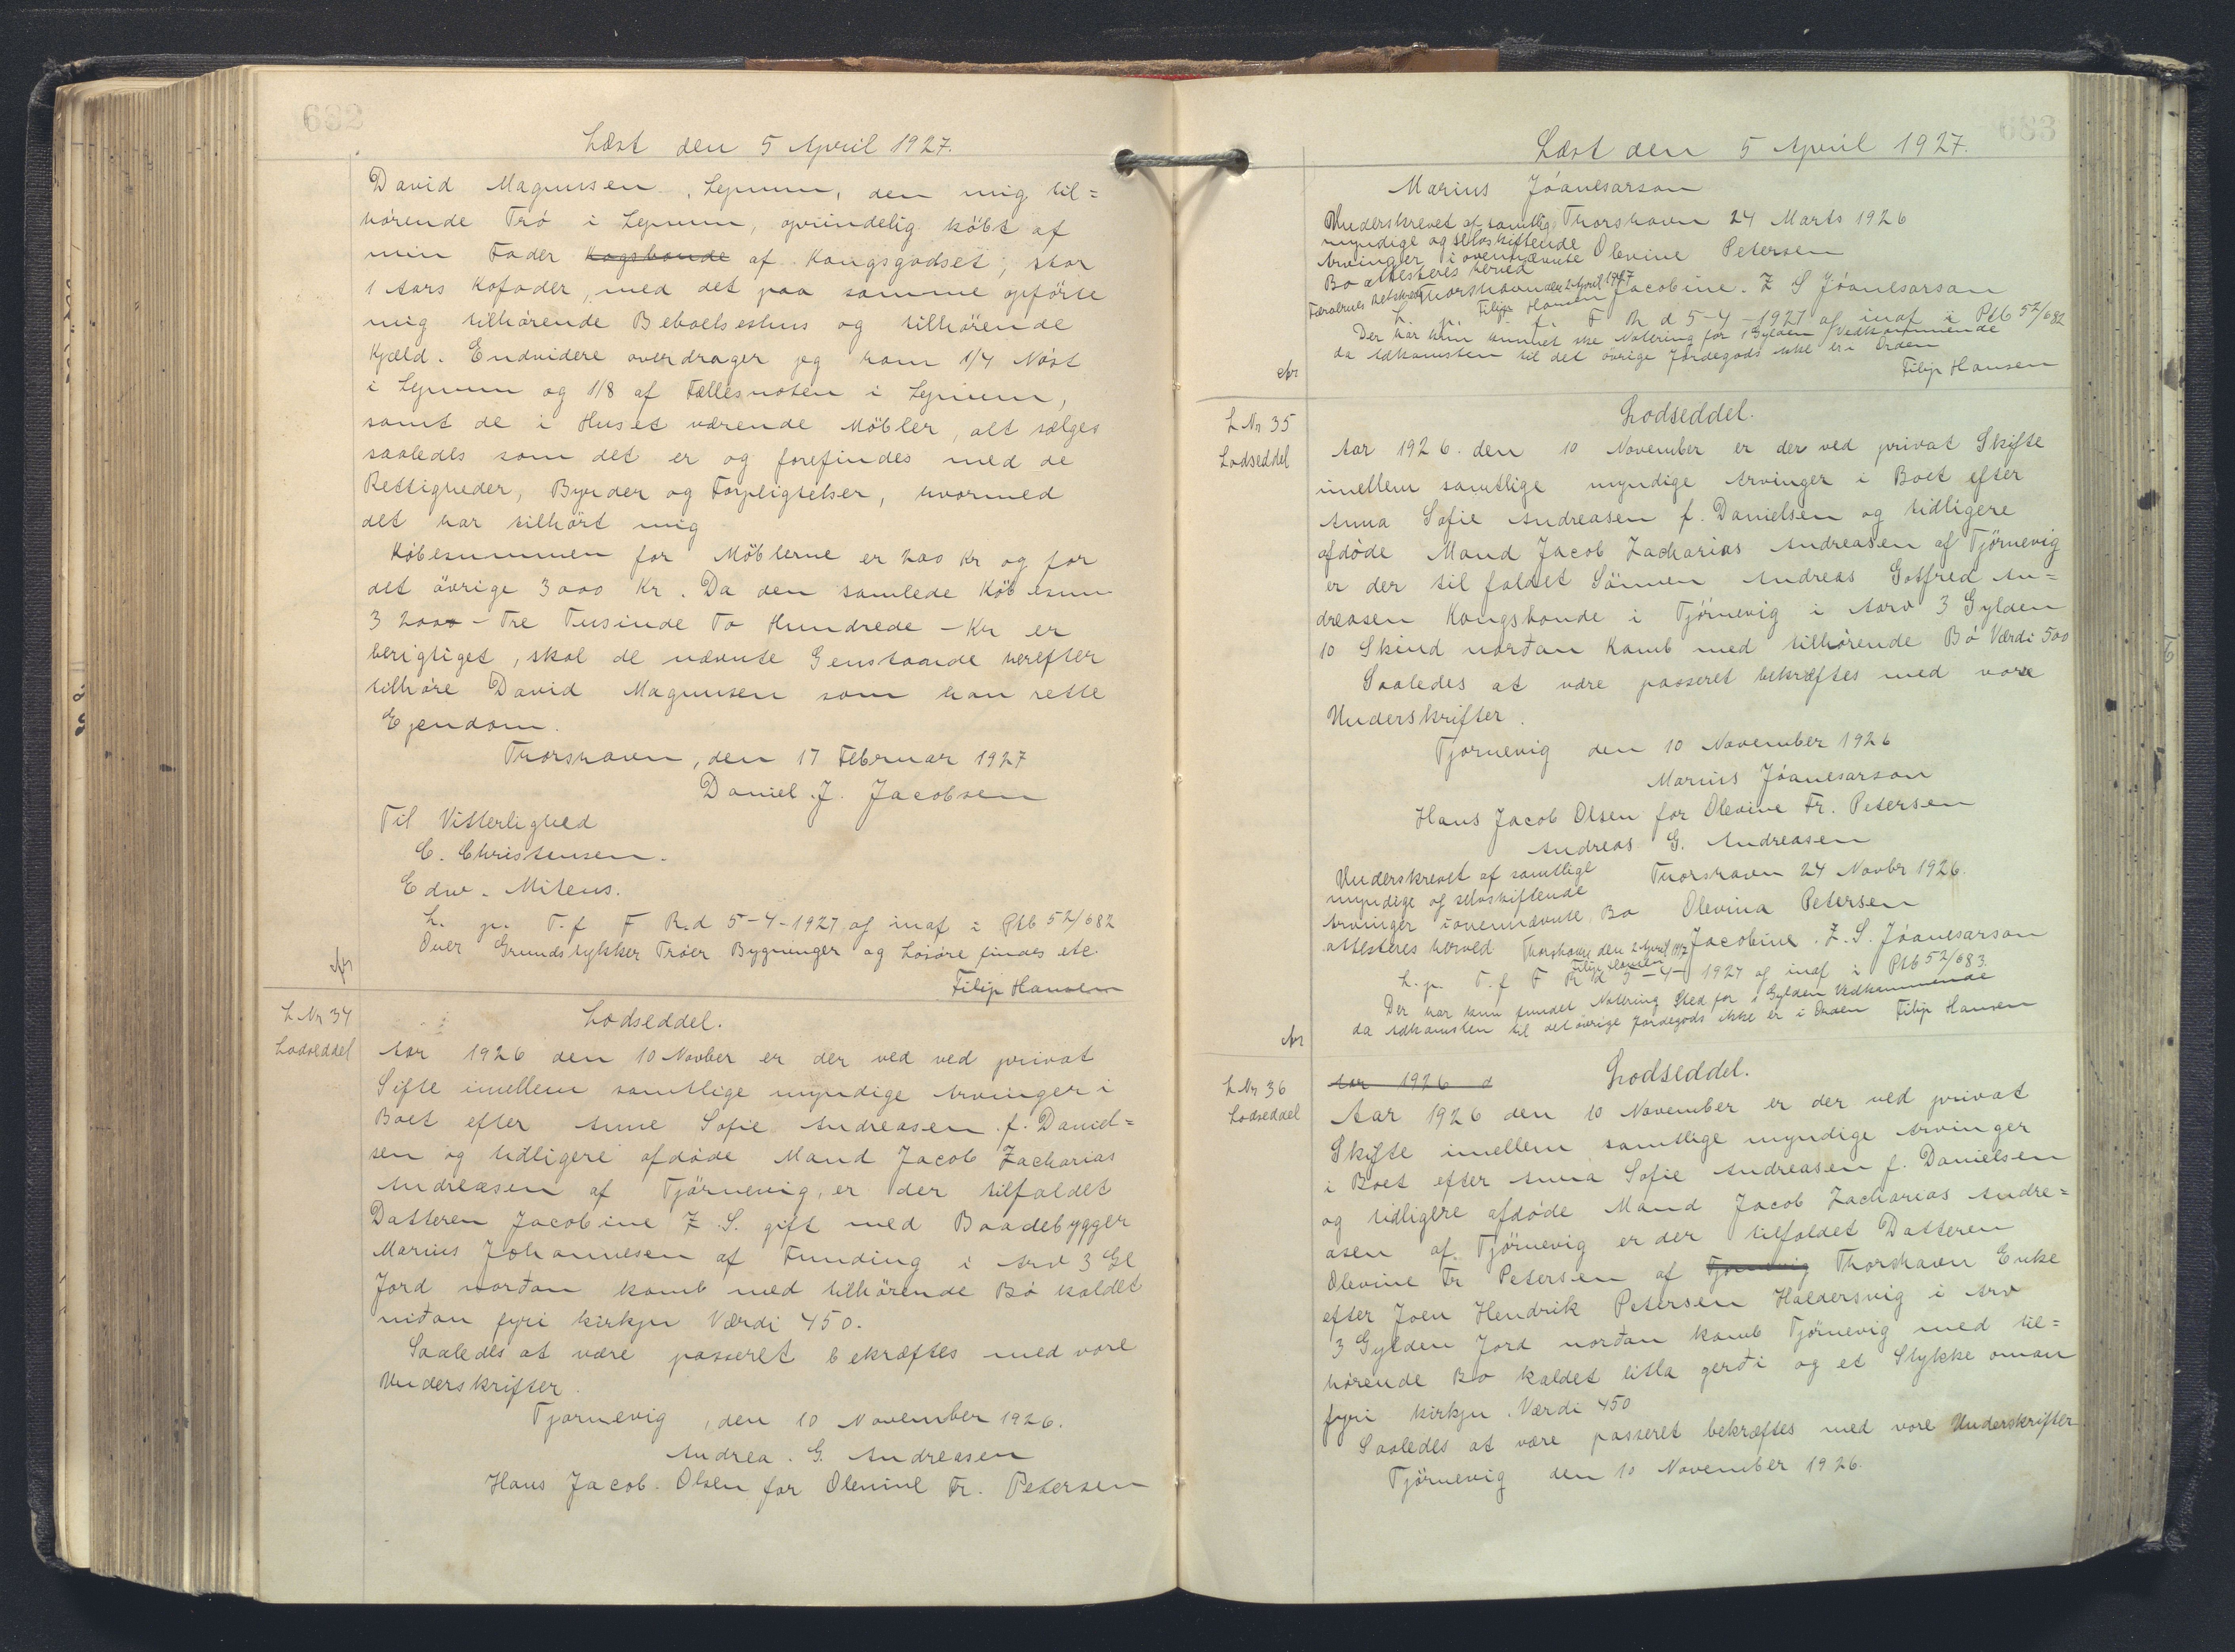 632
Læst den 5 April 1927.
David Magnussen, Lejnum, den mig til=
hørende Trø i Lejnum, oprindelig købt af
min Fader Kogsbonde af Kongsgodset, stor
1 Aars Kofoder, med det paa samme opförte
mig tilhørende Beboelseshus og tilhørende
Kjæld. Endvidere overdrager jeg ham 1/4 Nøst
i Lejnum og 1/8 af Fællesnoten i Lejnum,
samt de i Huset værende Möbler, alt sælges
saaledes som det er og forefindes med de
Rettigheder, Byrder og Forpligtelser, hvormed
det har tilhört mig
Købesummen for Möblerne er 200 Kr og for
det övrige 3000 Kr. Da den samlede Købesum
3200 - Tre Tusinde To Hundrede - Kr er
berigtiget, skal de nævnte Genstande herefter
tilhøre David Magnussen som han rette
Ejendom.
Thorshavn, den 17 Februar 1927
Daniel J. Jacobsen
Til Vitterlighed
C. Christensen.
Edw. Mitens.
L. p. T. f F R. d 5-4-1927 af inaf i Ptb 52/682
Over Grundstykker Trøer Bygninger og Løsøre findes etc.
Filip Hansen
L Nr 34
Lodseddel
Lodseddel.
Aar 1926 den 10 Novber er der ved ved privat
Sifte imellem samtlige myndige Arvinger i
Boet efter Anne Sofie Andreasen f. Daniel=
sen og tidligere afdøde Mand Jacob Zacharias
Andreasen af Tjörnevig, er der tilfaldet
Datteren Jacobine Z. S. gift med Baadebygger
Marius Johannesen af Funding i Arv 3 Gl
Jord norðan kamb med tilhörende Bø kaldet
niðan fyri kirkju Værdi 450.
Saaledes at være passeret bekræftes med vore
Underskrifter.
Tjørnevig, den 10 November 1926.
Andrea. G. Andreasen
Hans Jacob. Olsen for Olevine Fr. Petersen
683
Læst den 5 April 1927.
Marius Jóanesarson
Underskrevet af samtlige Thorshavn 24 Marts 1926
myndige og selvskiftende
Arvinger i ovennævnte Olevine Petersen
Bo attesteres herved
Thorshavn den 2 April 1927
Filip Hansen Jacobine. Z S Jóanesarson
L. p. T. f. F R d 5-4-1927 af inaf i Ptb 52/682
Der har kun kunnet ske Notering for 1 Gylden Vedkommende
da Adkomsten til det övrige Jordegods ikke er i Orden
Filip Hansen
L Nr 35
Lodseddel
Lodseddel.
Aar 1926. den 10 November er der ved privat Skifte
imellem samtlige myndige Arvinger i Boet efter
Anna Sofie Andreasen f. Danielsen og tidligere
afdöde Mand Jacob Zacharias Andreasen af Tjörnevig
er der til faldet Sönnen Andreas Gotfred An=
dreasen Kongsbonde i Tjörnevig i Aarv 3 Gylden
10 Skind norðan Kamb med tilhörende Bø Værdi 500
Saaledes at være passeret bekræftes med vore
Underskrifter.
Tjörnevig den 10 November 1926
Marius Jóanesarson
Hans Jacob Olsen for Olevine Fr. Petersen
Andreas G. Andreasen
Underskrevet af samtlige Thorshavn 24 Novbr 1926.
myndige og selvskiftende
Arvinger i ovennævnte Bo Olevina Petersen
attesteres herved Thorshavn den 2 April 1927 Jacobine. Z. S. Jóanesarson
Filip Hansen
L. p. T. f F R d 5-4-1927 af inaf i Ptb 52/683.
Der har kun fundet Notering Sted for 1 Gylden Vedkommende
da Adkomsten til det övrige Jordegods ikke er i Orden Filip Hansen
L Nr 36
Lodseddel
Aar 1926 d
Lodseddel.
Aar 1926 den 10 November er der ved privat
Skifte imellem samtlige myndige Arvinger
i Boet efter Anna Sofie Andreasen f. Danielsen
og tidligere afdöde Mand Jacob Zacharias Andre=
asen af Tjörnevig er der tilfaldet Datteren
Olevine Fr Petersen af Tjörnevig Thorshavn Enke
efter Joen Hendrik Petersen Haldersvig i Arv
3 Gylden Jord norðan kamb Tjörnevig med til=
hørende Bø kaldet litla gerði og et Stykke oman
fyri kirkju. Værdi 450
Saaledes at være passeret bekræftes med vore Underskrifter
Tjörnevig den 10 November 1926.